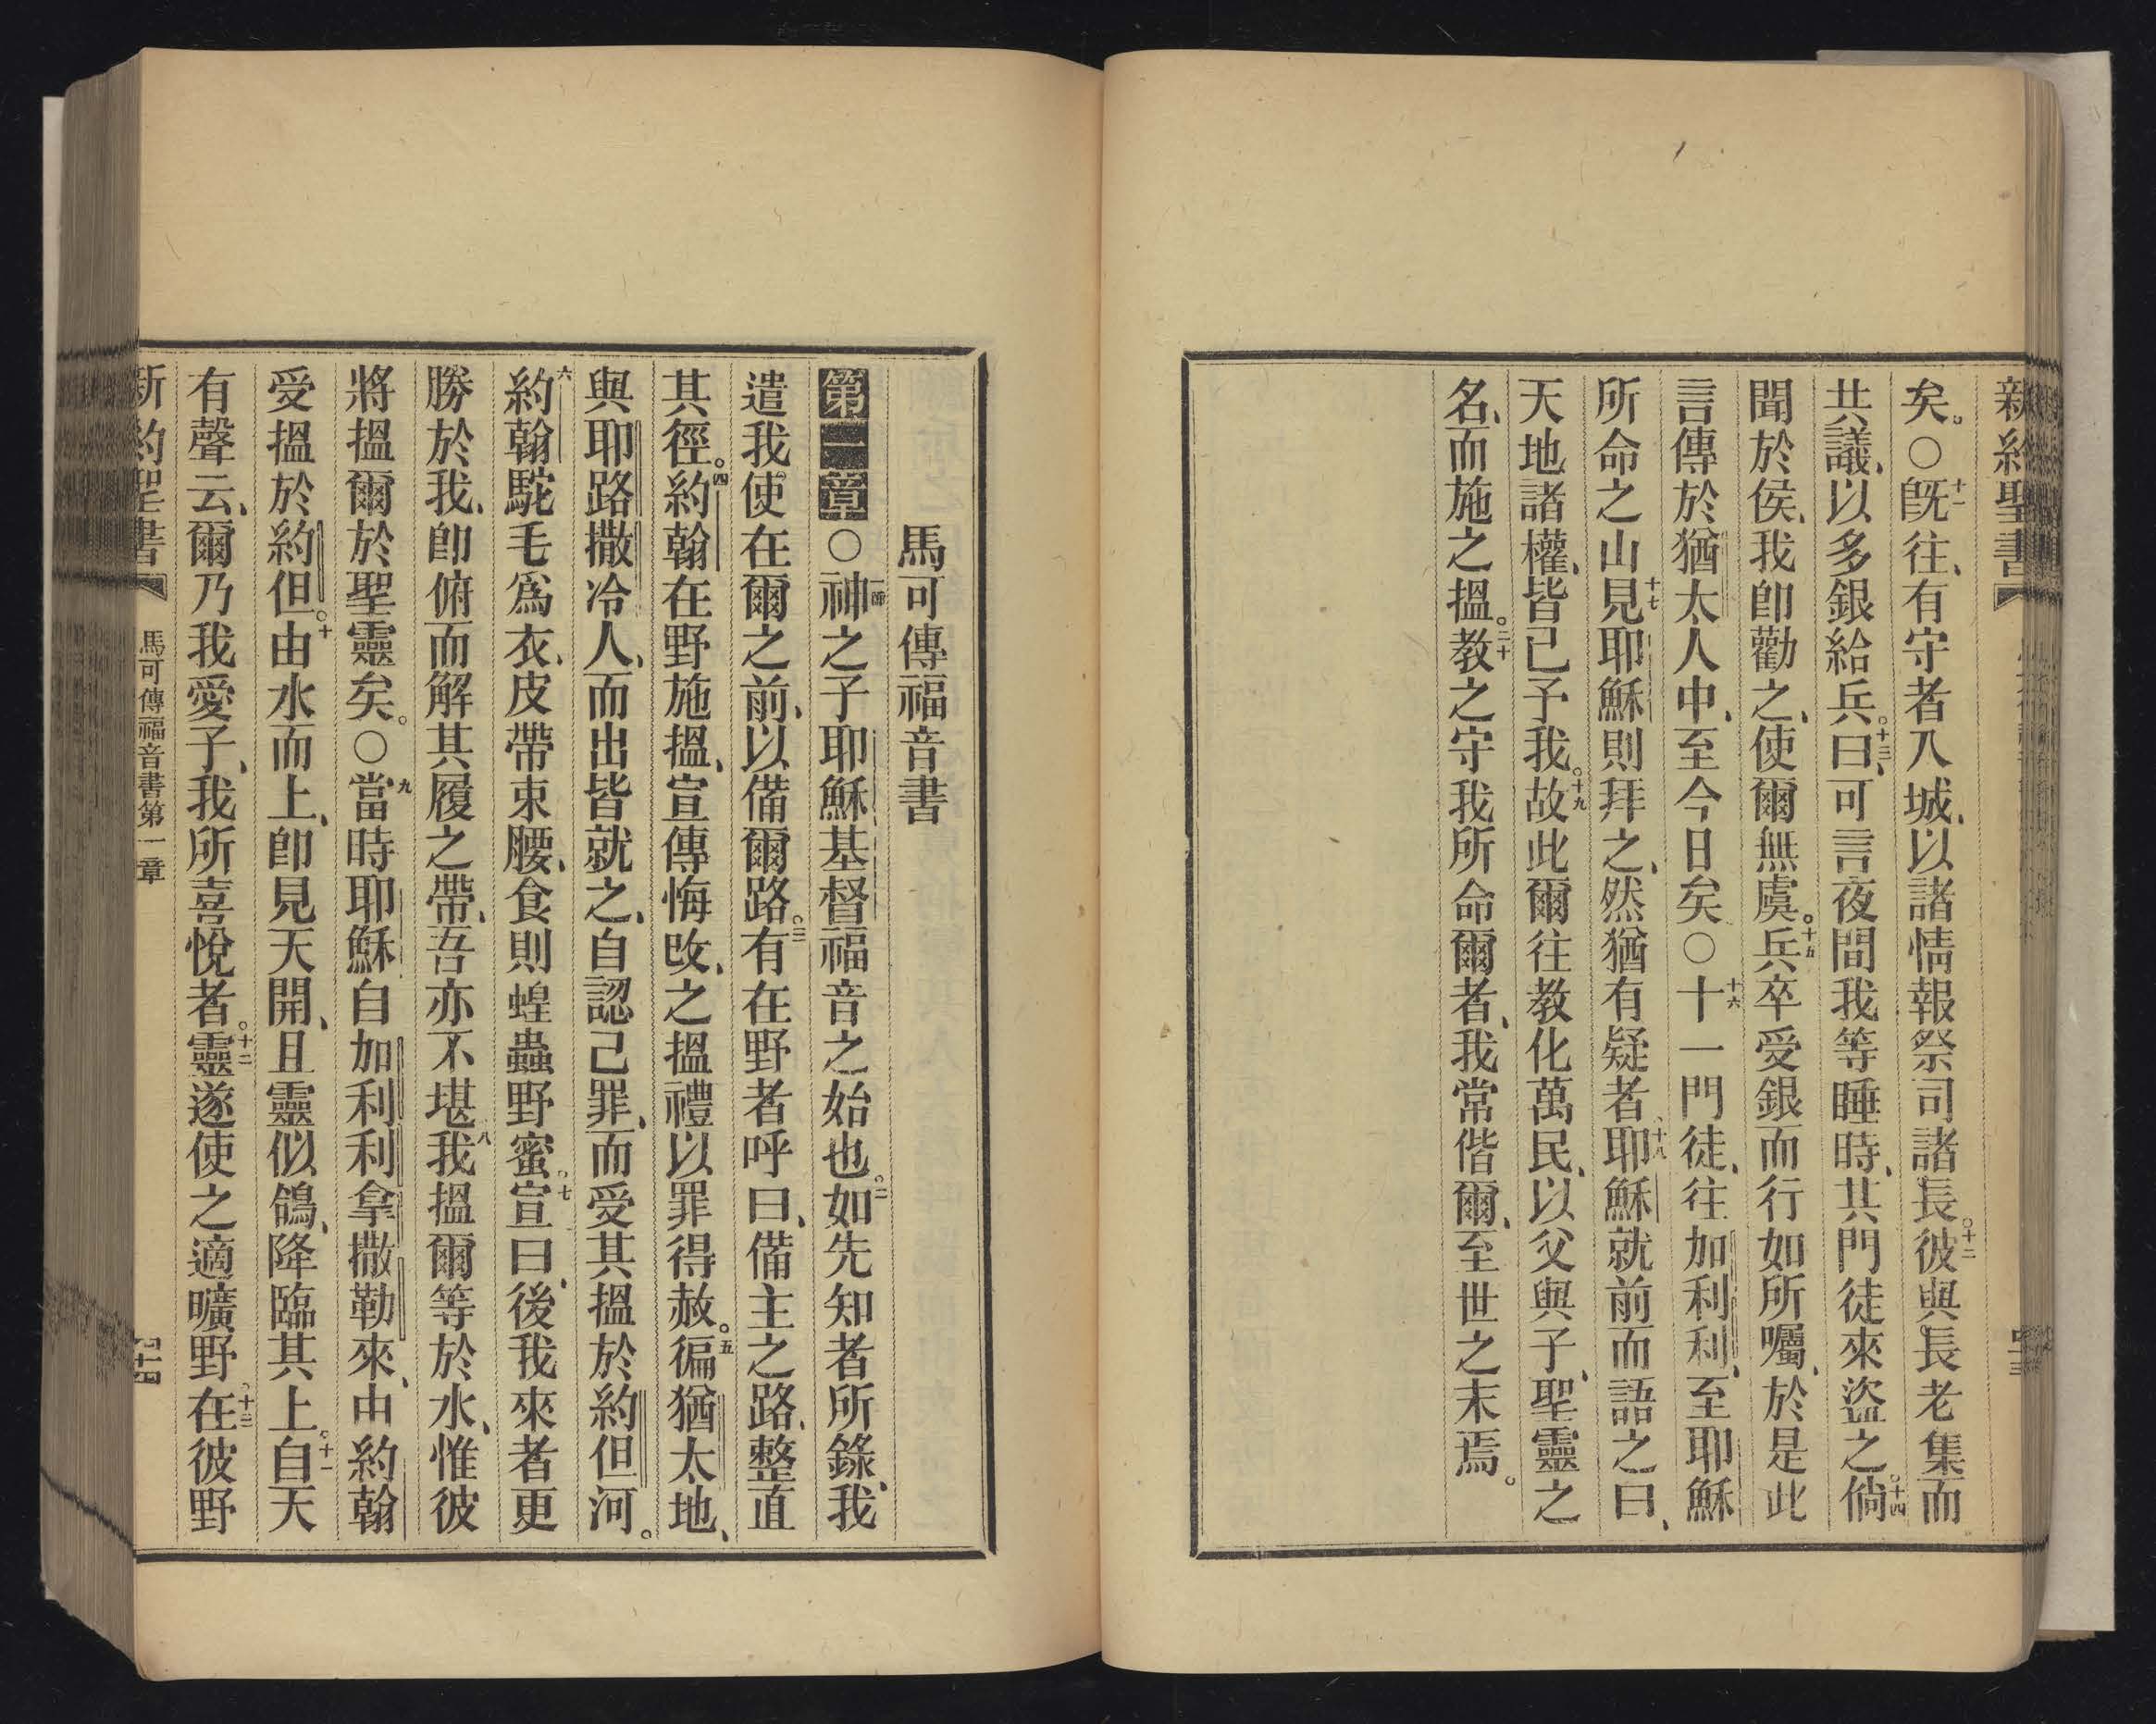 新約聖書
矣。○十一旣往、有守者入城、以諸情報祭司諸長。十二彼與長老集而
共議、以多銀給兵。十三曰、可言夜間我等睡時、其門徒來盜之。十四倘
聞於侯、我卽勸之、使爾無虞。十五兵卒受銀而行如所囑、於是此
言傳於猶太人中、至今日矣○十六十一門徒、往加利利、至耶穌
所命之山十七見耶穌則拜之、然猶有疑者、十八耶穌就前而語之曰、
天地諸權、皆已予我。十九故此爾往教化萬民、以父與子、聖靈之
名、而施之搵。二十教之守我所命爾者、我常偕爾、至世之末焉。
馬可傳福音書
第一章○一節神之子耶穌基督福音之始也。二如先知者所錄、我
遣我使在爾之前、以備爾路。三有在野者呼曰、備主之路、整直
其徑。四約翰在野施搵、宣傳悔改、之搵禮以罪得赦。五徧猶太地、
與耶路撒冷人、而出皆就之、自認己罪、而受其搵於約但河。
六約翰駝毛爲衣、皮帶束腰、食則蝗蟲野蜜。七宣曰、後我來者更
勝於我、卽俯而解其履之帶、吾亦不堪八我搵爾等於水、惟彼
將搵爾於聖靈矣。○九當時耶穌自加利利拿撒勒來、由約翰
受搵於約但。十由水而上、卽見天開、且靈似鴿、降臨其上。十一自天
有聲云、爾乃我愛子、我所喜悅者。十二靈遂使之適曠野。十三在彼野
新約聖書 馬可傳福音書第一章 四十四